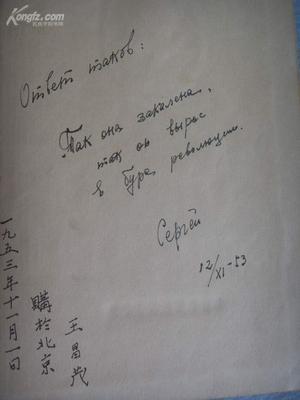 Kongfz.com
孔夫子旧书网
Ответ таков:
Так она закалена,
так он вырос
в буре революции.
Сергей
12/XI-53
一九五三年十一月一旬
購於北京
王昌茂